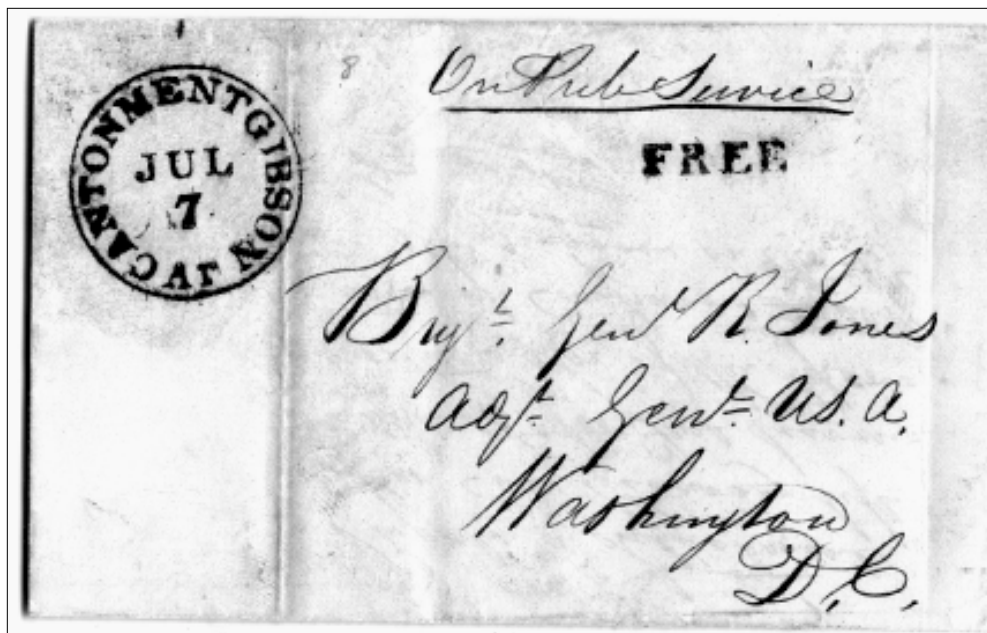 CANTONMENT GIBSON Ar
JUL
7
8
On Pub Service
FREE
Brigt. Genl R. Jones
Adjt. Genl. U.S.A.
Washington
D.C.